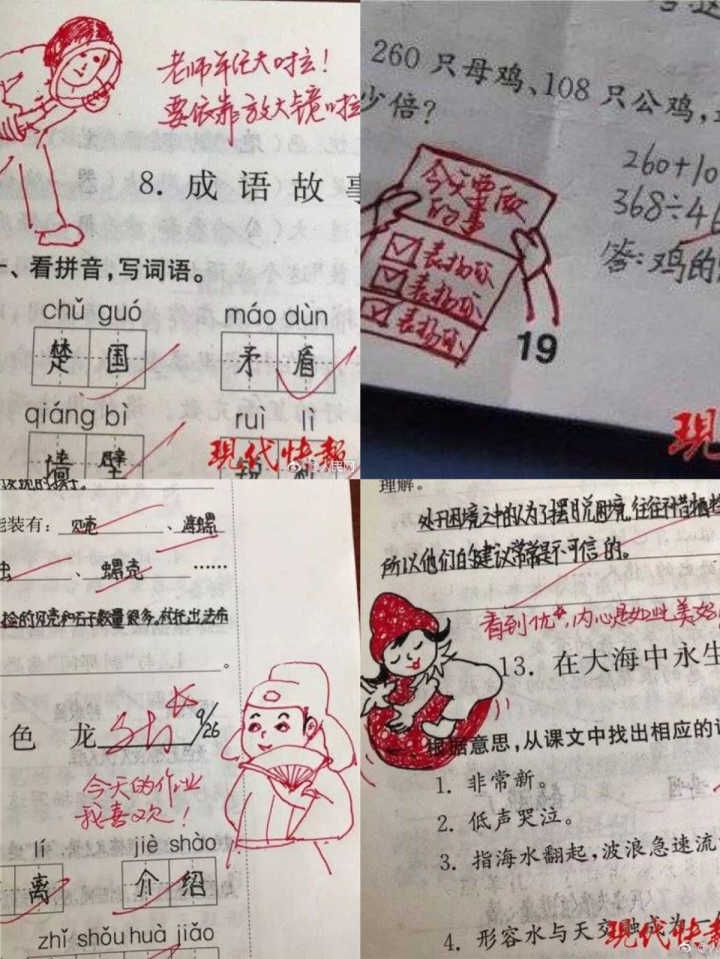 老师年纪大啦！
要依靠放大镜啦
8. 成语故事
一、看拼音，写词语。
chǔ guó
máo dùn
楚国
矛盾
qiáng bì
ruì lì
墙壁
现代快报
260 只母鸡、108 只公鸡，
少倍？
260+10
368÷46
答：鸡的
今天要做
的事
表扬你
表扬你
表扬你
19
现
能装有：贝壳、海螺
、螺壳 ……
捡的贝壳和石子数量很多，就托出去布
。
色 龙
优★
9/26
今天的作业
我喜欢！
lí
jiè shào
离
介绍
zhǐ shǒu huà jiǎo
理解。
处于困境之中的人为了摆脱困境，往往不惜牺牲
所以他们的建议常常是不可信的。
看到优★，内心是如此美好
13. 在大海中永生
根据意思，从课文中找出相应的词
1. 非常新。
2. 低声哭泣。
3. 指海水翻起，波浪急速流
4. 形容水与天交融成为一
现代快报